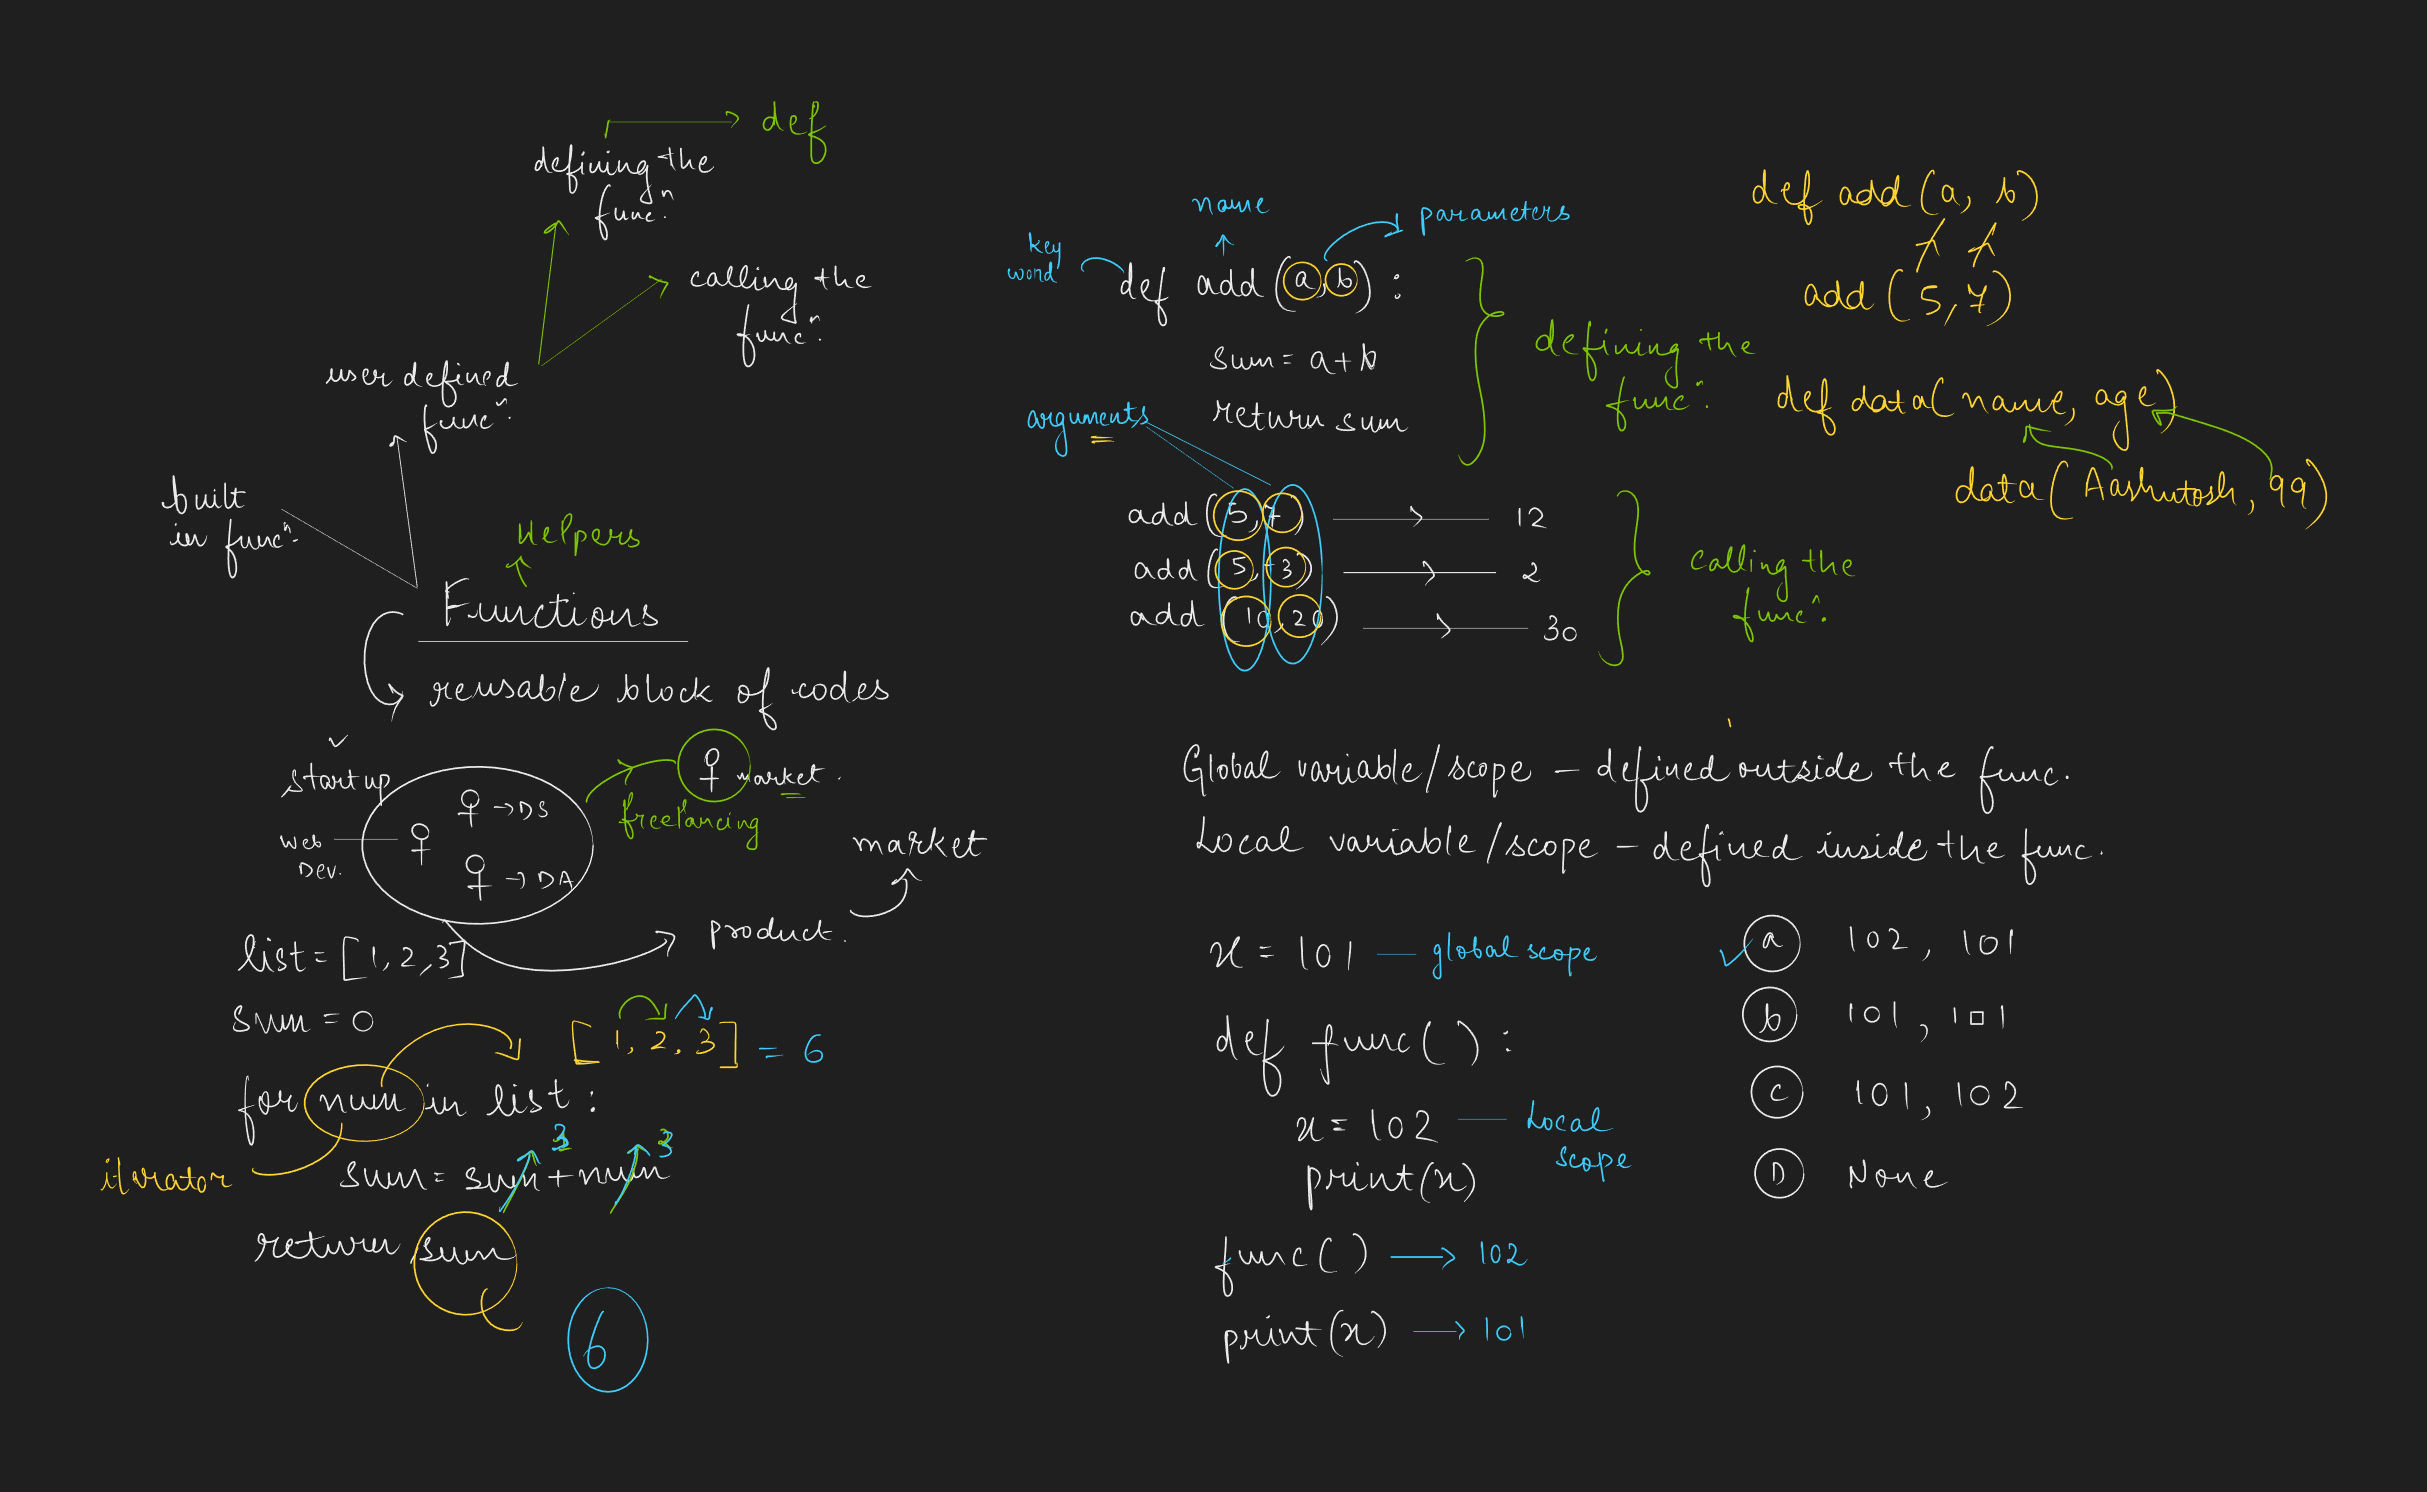 def
defining the
funcⁿ.
calling the
funcⁿ.
user defined
funcⁿ.
built
in funcⁿ.
Helpers
Functions
reusable block of codes
startup
web
Dev.
→ DS
→ DA
market.
freelancing
product.
market
list = [1, 2, 3]
sum = 0
[1, 2, 3] = 6
for num in list :
iterator
3 3
sum = sum + num
return sum
6
name
parameters
key
word
def add (a, b) :
sum = a + b
return sum
defining the
funcⁿ.
arguments
add (5, 7) → 12
add (5, -3) → 2
add (10, 20) → 30
calling the
funcⁿ.
def add (a, b)
add (5, 7)
def data(name, age)
data(Aashutosh, 99)
Global variable/scope – defined outside the func.
Local variable/scope – defined inside the func.
x = 101 — global scope
def func( ) :
x = 102 — Local
scope
print(x)
func( ) → 102
print(x) → 101
a 102, 101
b 101, 101
c 101, 102
D None